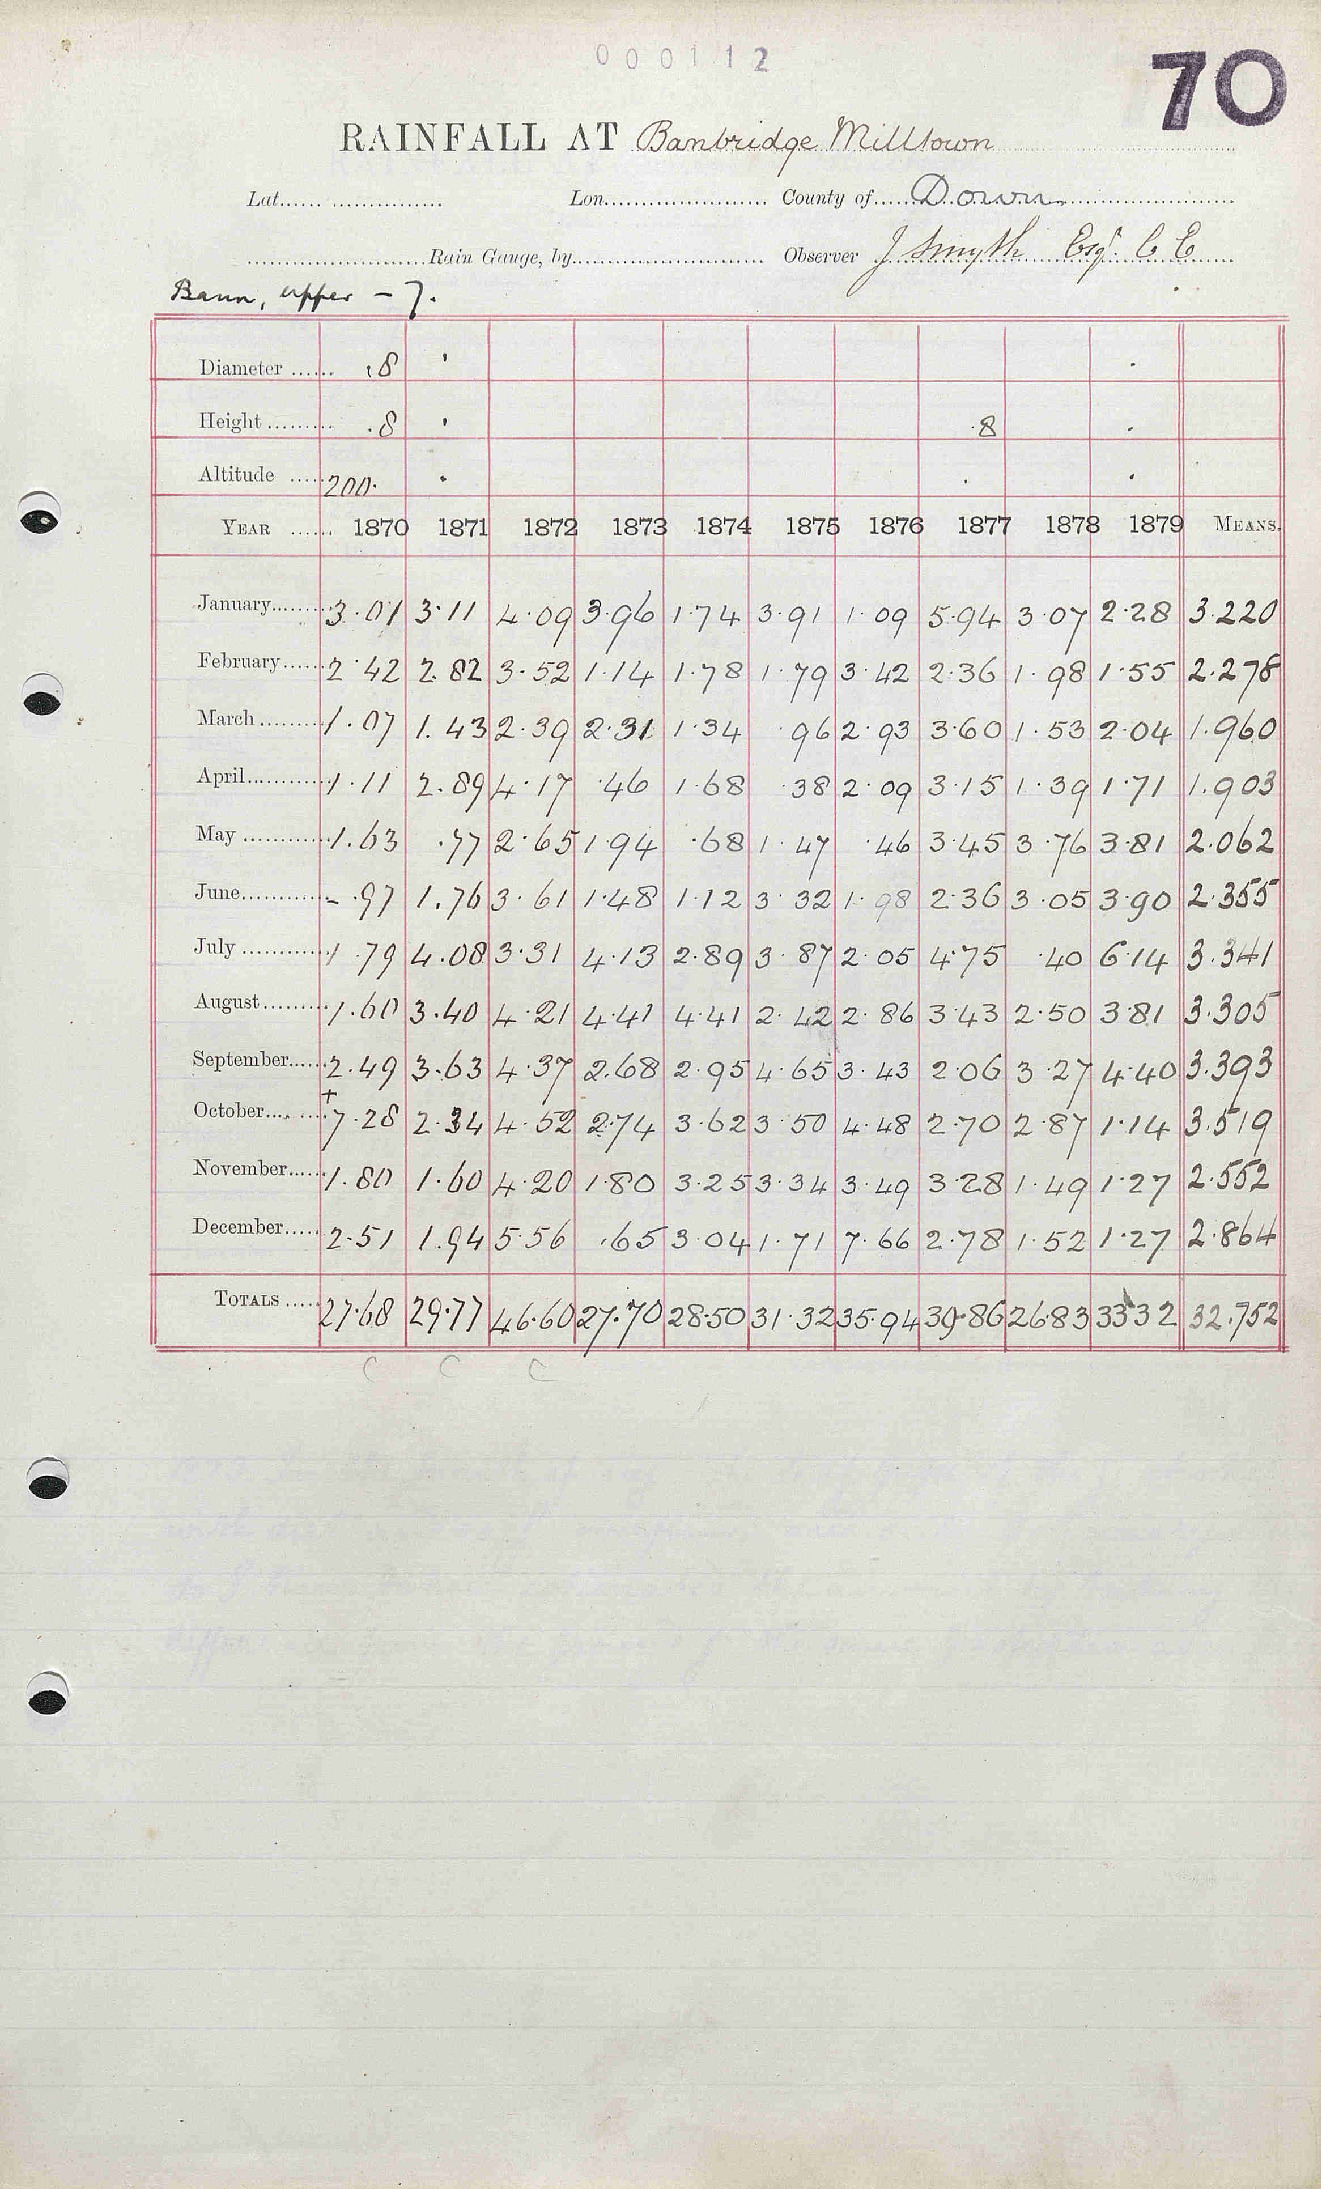 000112
70
RAINFALL AT Banbridge Milltown
Lat. Lon. County of Down
Rain Gauge, by Observer J Smyth Esqr. C E
Bann, upper - 7.
Diameter 8 '
Height .8 ' 8
Altitude 200.
YEAR 1870 1871 1872 1873 1874 1875 1876 1877 1878 1879 MEANS.
January 3.01 3.11 4.09 3.96 1.74 3.91 1.09 5.94 3.07 2.28 3.220
February 2.42 2.82 3.52 1.14 1.78 1.79 3.42 2.36 1.98 1.55 2.278
March 1.07 1.43 2.39 2.31 1.34 .96 2.93 3.60 1.53 2.04 1.960
April 1.11 2.89 4.17 .46 1.68 .38 2.09 3.15 1.39 1.71 1.903
May 1.63 .77 2.65 1.94 .68 1.47 .46 3.45 3.76 3.81 2.062
June - .97 1.76 3.61 1.48 1.12 3.32 1.98 2.36 3.05 3.90 2.355
July 1.79 4.08 3.31 4.13 2.89 3.87 2.05 4.75 .40 6.14 3.341
August 1.60 3.40 4.21 4.41 4.41 2.42 2.86 3.43 2.50 3.81 3.305
September 2.49 3.63 4.37 2.68 2.95 4.65 3.43 2.06 3.27 4.40 3.393
October +7.28 2.34 4.52 2.74 3.62 3.50 4.48 2.70 2.87 1.14 3.519
November 1.80 1.60 4.20 1.80 3.25 3.34 3.49 3.28 1.49 1.27 2.552
December 2.51 1.94 5.56 .65 3.04 1.71 7.66 2.78 1.52 1.27 2.864
TOTALS 27.68 29.77 46.60 27.70 28.50 31.32 35.94 39.86 26.83 33.32 32.752
C C C